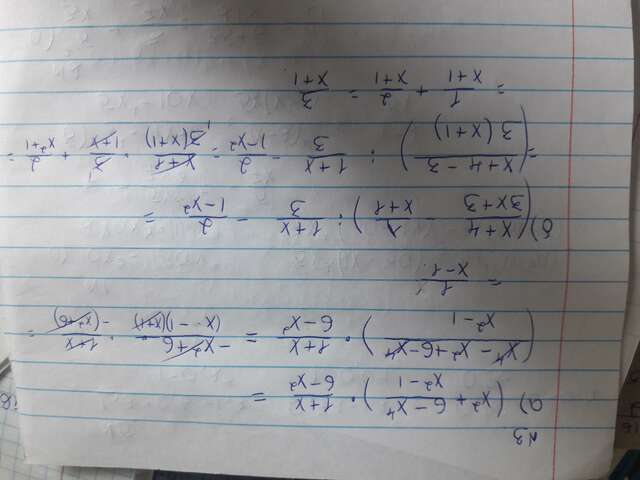 №3
а) (x² + (6 - x⁴)/(x² - 1)) · (1+x)/(6-x²) =
((x⁴ - x² + 6 - x⁴)/(x² - 1)) · (1+x)/(6-x²) = (-x²+6)/((x-1)(x+1)) · (1+x)/(-(x²+6)) =
= 1/(x-1)
б) ((x+4)/(3x+3) - 1/(x+1)) : (1+x)/3 - 2/(1-x²) =
= ((x+4-3)/(3(x+1))) : (1+x)/3 - 2/(1-x²) = (x+1)/(3(x+1)) · 3/(1+x) + 2/(x²+1) =
= 1/(x+1) + 2/(x+1) = 3/(x+1)